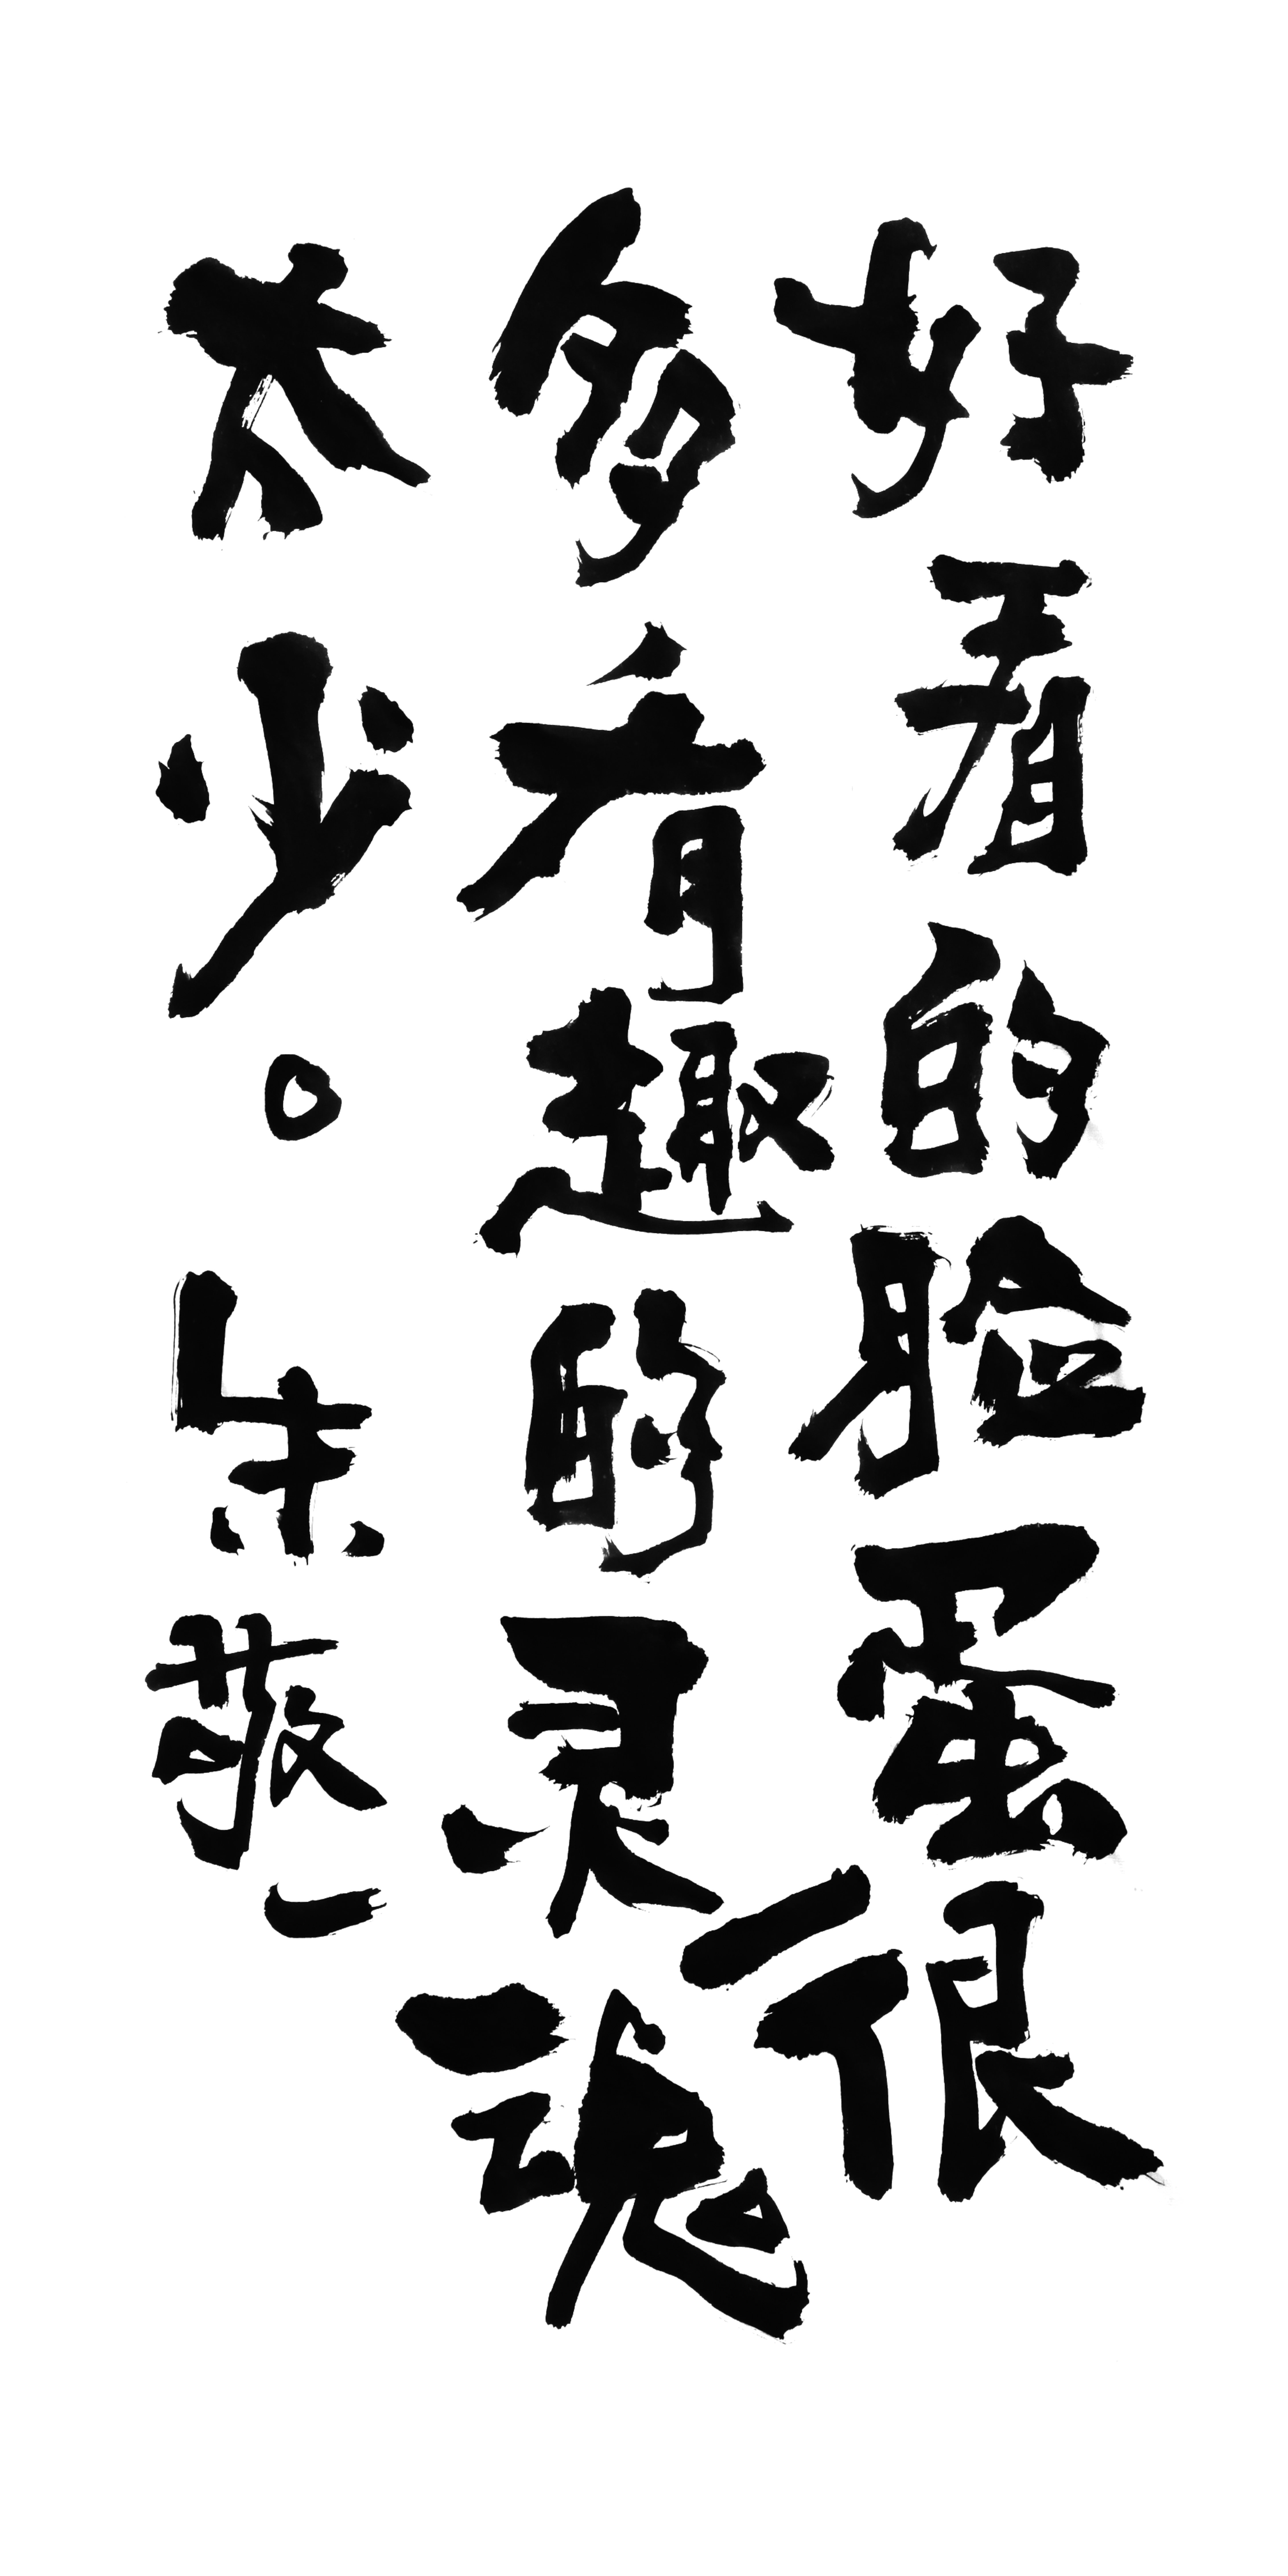 好看的脸蛋很
多有趣的灵魂
太少。朱敬一